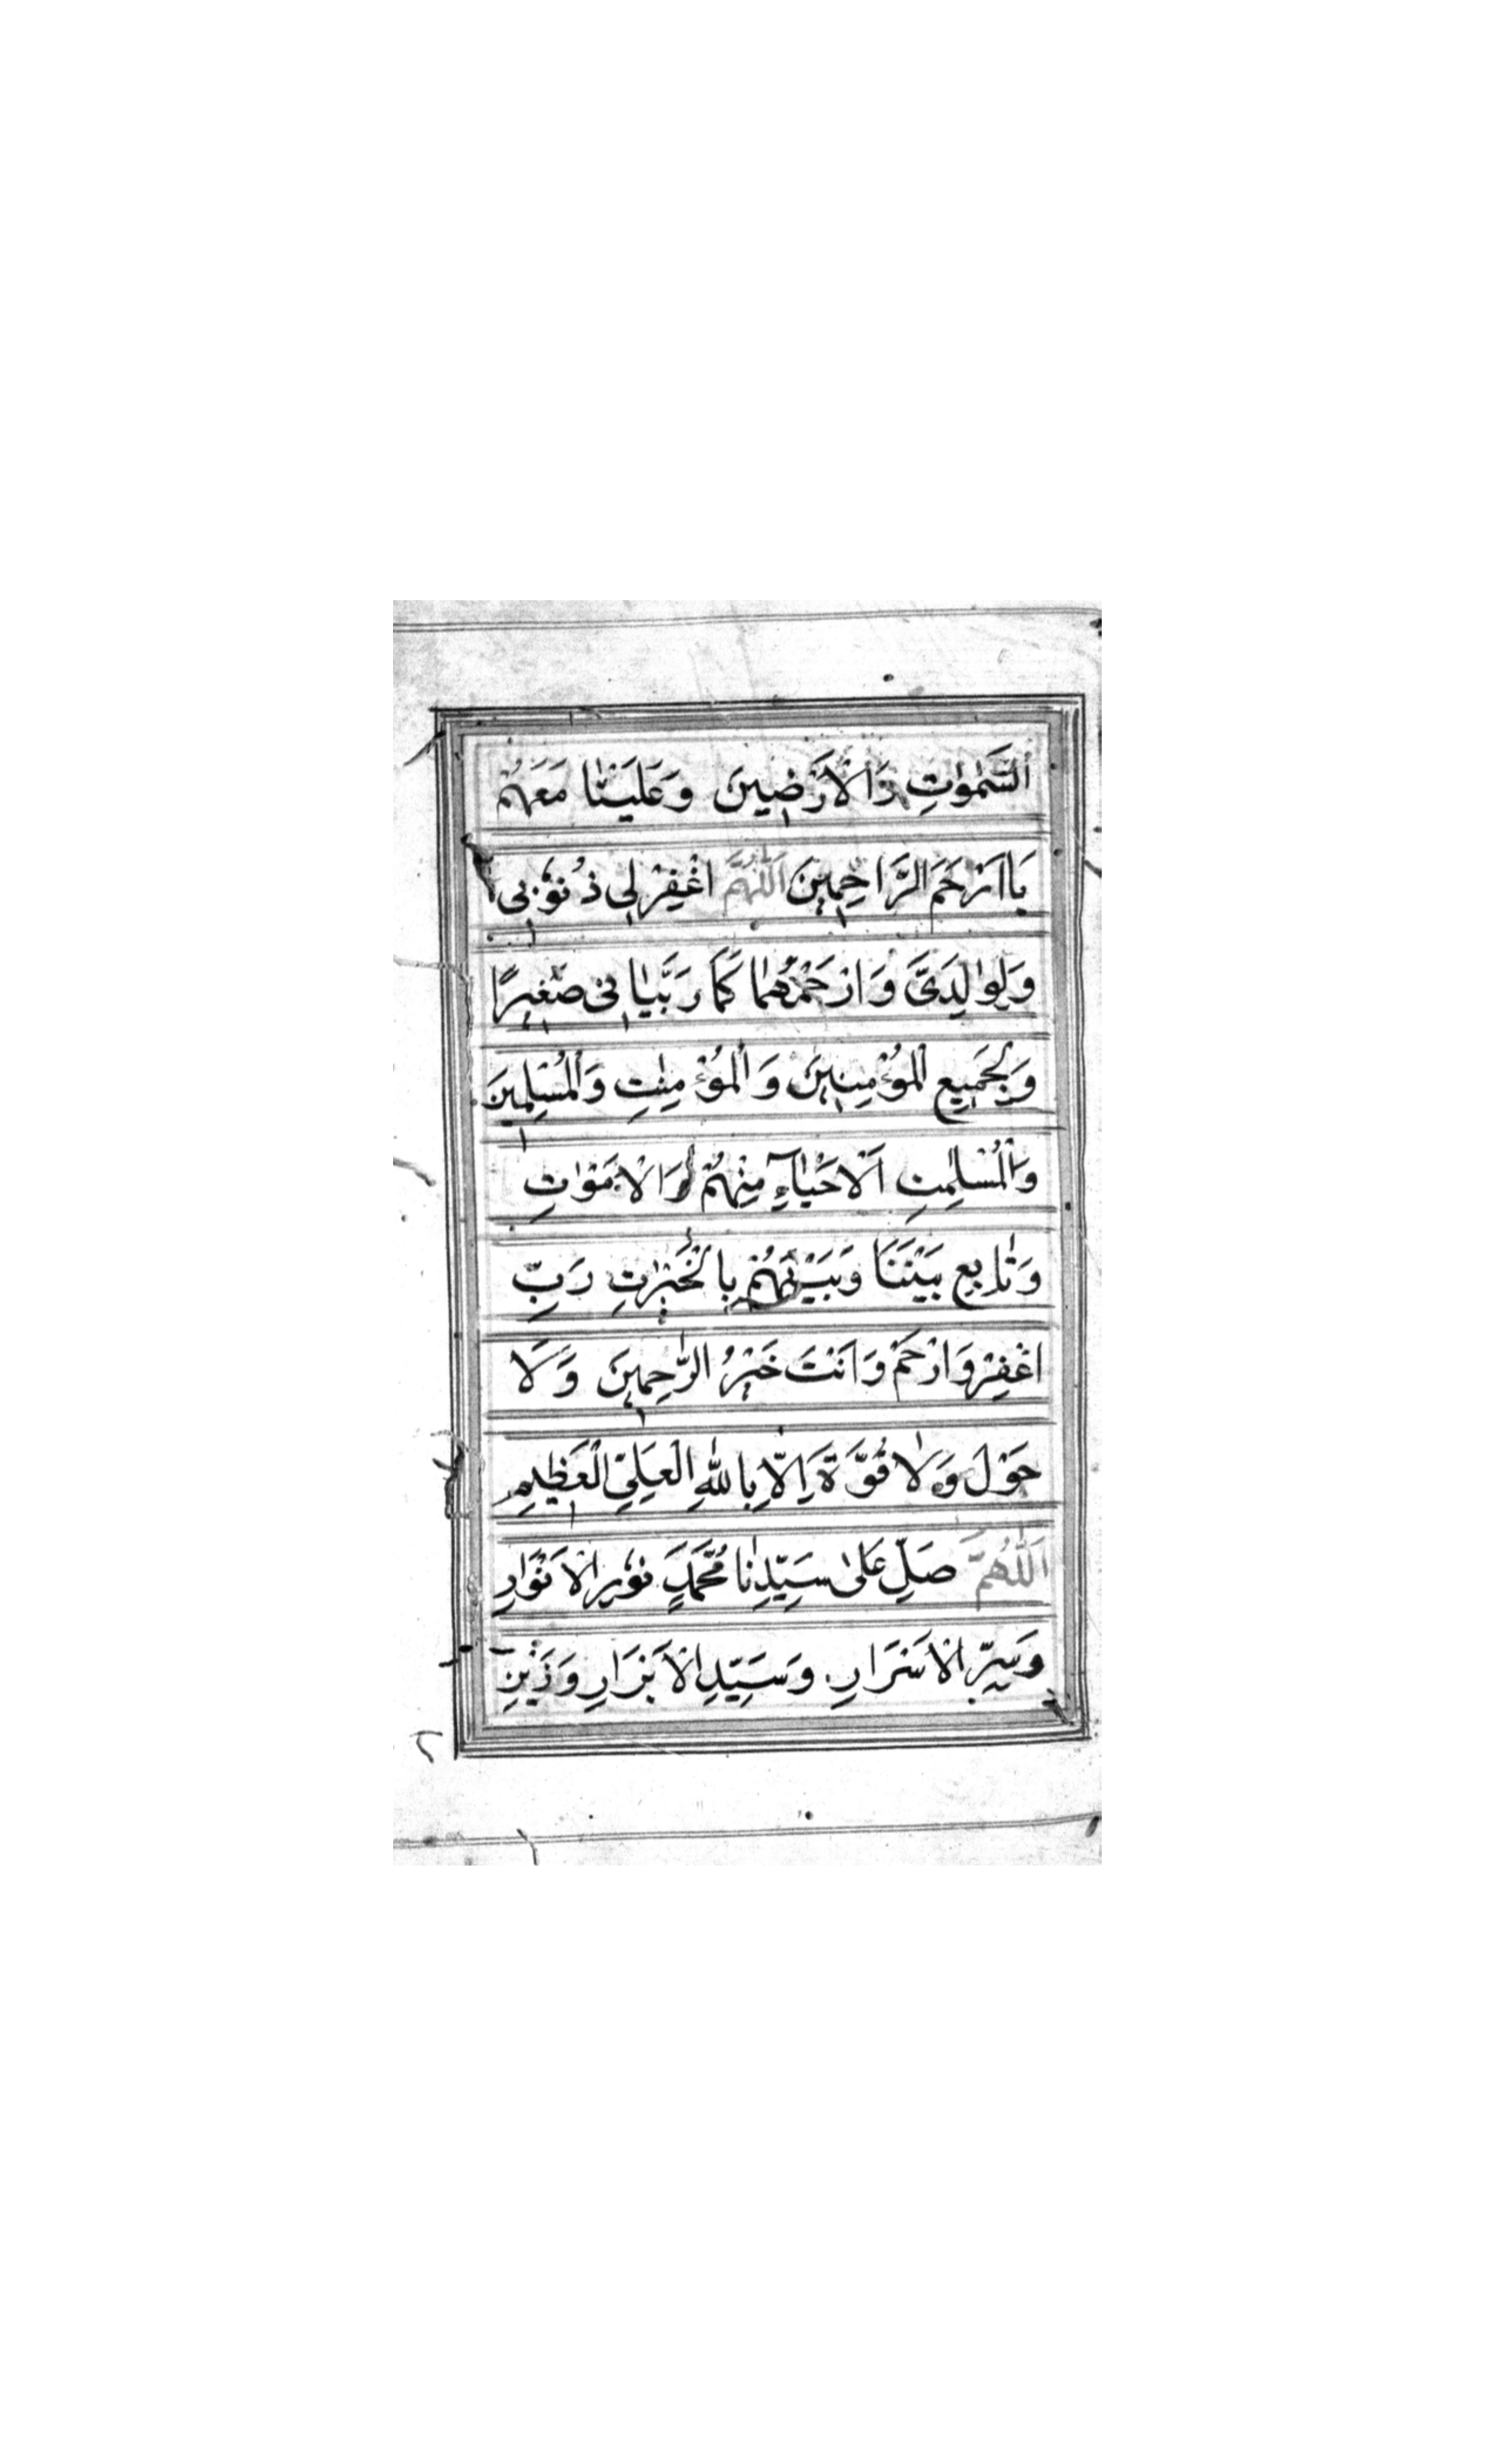 اَلسَّمٰوٰتِ وَالْاَرَضٖينَ وَعَلَيْنَا مَعَهُمْ
يَا اَرْحَمَ الرَّاحِمٖينَ اَللّٰهُمَّ اغْفِرْ لٖى ذُنُوبٖى
وَلِوٰالِدَىَّ وَارْحَمْهُمَا كَمَا رَبَّيَانٖى صَغٖيرًا
وَلِجَمٖيعِ الْمُؤْمِنٖينَ وَالْمُؤْمِنٰتِ وَالْمُسْلِمٖينَ
وَالْمُسْلِمٰتِ اَلْاَحْيَاءِ مِنْهُمْ وَالْاَمْوٰاتِ
وَتَابِعْ بَيْنَنَا وَبَيْنَهُمْ بِالْخَيْرٰتِ رَبِّ
اغْفِرْ وَارْحَمْ وَاَنْتَ خَيْرُ الرّٰحِمٖينَ وَلَا
حَوْلَ وَلَا قُوَّةَ اِلَّا بِاللّٰهِ الْعَلِىِّ الْعَظٖيمِ
اَللّٰهُمَّ صَلِّ عَلٰى سَيِّدِنَا مُحَمَّدٍ نُورِ الْاَنْوَارِ
وَسِرِّ الْاَسْرَارِ وَسَيِّدِ الْاَبْرَارِ وَزَيْنِ